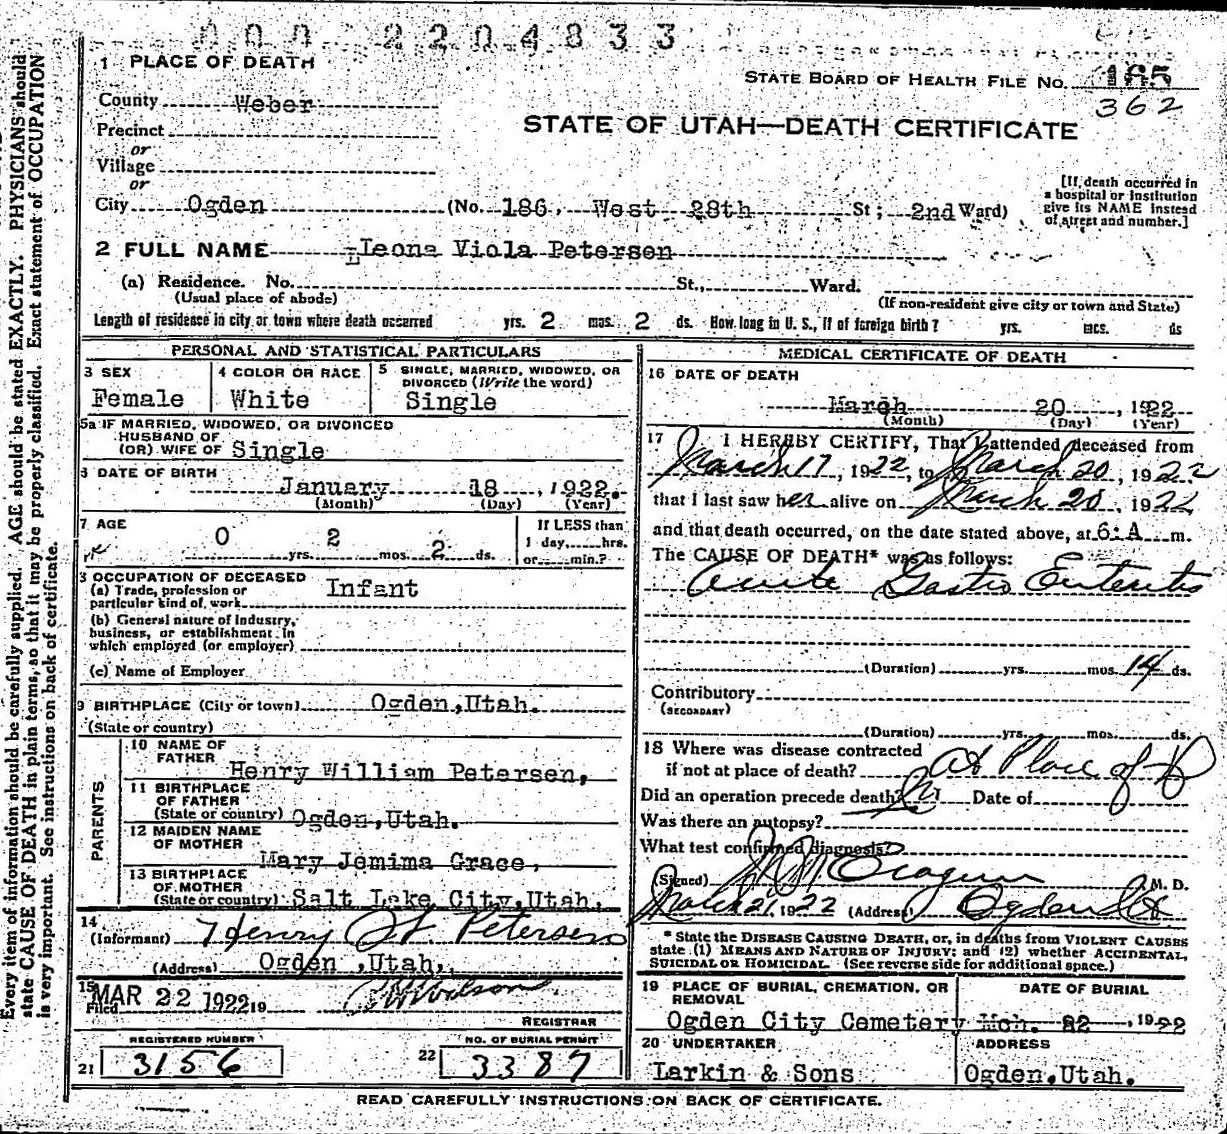 000 2204833
1 PLACE OF DEATH
STATE BOARD OF HEALTH FILE No. 165
362
County Weber
STATE OF UTAH—DEATH CERTIFICATE
Precinct
or
Village
or
City Ogden (No. 186, West 28th St; 2nd Ward)
[If death occurred in
a hospital or institution
give its NAME instead
of street and number.]
2 FULL NAME Leona Viola Petersen
(a) Residence. No. St., Ward.
(Usual place of abode)
(If non-resident give city or town and State)
Length of residence in city or town where death occurred yrs. 2 mos. 2 ds. How long in U. S., if of foreign birth? yrs. mcs. ds
PERSONAL AND STATISTICAL PARTICULARS
3 SEX
Female
4 COLOR OR RACE
White
5 SINGLE, MARRIED, WIDOWED, OR
DIVORCED (Write the word)
Single
5a IF MARRIED, WIDOWED, OR DIVORCED
HUSBAND OF
(OR) WIFE OF Single
6 DATE OF BIRTH
January 18, 1922.
(Month) (Day) (Year)
7 AGE
0 yrs. 2 mos. 2 ds.
If LESS than
1 day, hrs.
or min.?
8 OCCUPATION OF DECEASED
(a) Trade, profession or
particular kind of work Infant
(b) General nature of Industry,
business, or establishment in
which employed (or employer)
(c) Name of Employer
9 BIRTHPLACE (City or town) Ogden,Utah.
(State or country)
PARENTS
10 NAME OF
FATHER
Henry William Petersen,
11 BIRTHPLACE
OF FATHER
(State or country) Ogden,Utah.
12 MAIDEN NAME
OF MOTHER
Mary Jemima Grace,
13 BIRTHPLACE
OF MOTHER
(State or country) Salt Lake City,Utah.
14
(Informant) Henry W. Petersen
(Address) Ogden ,Utah,
15
Filed MAR 22 1922 19
REGISTRAR
REGISTERED NUMBER
21 3156
NO. OF BURIAL PERMIT
22 3387
MEDICAL CERTIFICATE OF DEATH
16 DATE OF DEATH
March 20, 1922
(Month) (Day) (Year)
17 I HEREBY CERTIFY, That I attended deceased from
March 17, 1922, to March 20, 1922
that I last saw her alive on March 20, 1922
and that death occurred, on the date stated above, at 6: A m.
The CAUSE OF DEATH* was as follows:
Acute Gastro Enteritis
(Duration) yrs. mos. 14 ds.
Contributory
(SECONDARY)
(Duration) yrs. mos. ds.
18 Where was disease contracted
if not at place of death? at Place of D
Did an operation precede death? No Date of
Was there an autopsy?
What test confirmed diagnosis?
(Signed) M. D.
March 21, 1922 (Address) Ogden
* State the DISEASE CAUSING DEATH, or, in deaths from VIOLENT CAUSES
state (1) MEANS AND NATURE OF INJURY; and (2) whether ACCIDENTAL,
SUICIDAL OR HOMICIDAL. (See reverse side for additional space.)
19 PLACE OF BURIAL, CREMATION, OR
REMOVAL
Ogden City Cemetery
DATE OF BURIAL
Mch. 22, 1922
20 UNDERTAKER
Larkin & Sons
ADDRESS
Ogden,Utah.
READ CAREFULLY INSTRUCTIONS ON BACK OF CERTIFICATE.
Every item of information should be carefully supplied. AGE should be stated EXACTLY. PHYSICIANS should
state CAUSE OF DEATH in plain terms, so that it may be properly classified. Exact statement of OCCUPATION
is very important. See instructions on back of certificate.